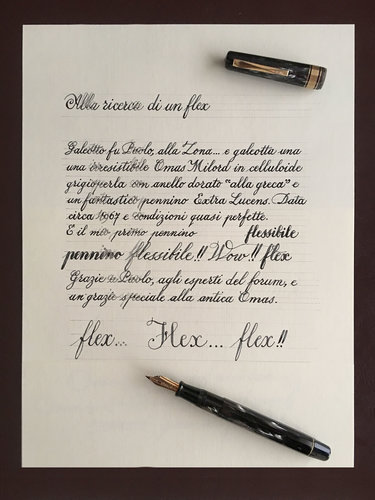 Alla ricerca di un flex
Galeotto fu Paolo, alla Zona... e galeotta una
una irresistibile Omas Milord in celluloide
grigioperla con anello dorato "alla greca" e
un fantastico pennino Extra Lucens. Data
circa 1967 e condizioni quasi perfette.
E il mio primo pennino flessibile
pennino flessibile!! Wow!! flex
Grazie a Paolo, agli esperti del forum, e
un grazie speciale alla antica Omas.
flex... Flex... flex!!